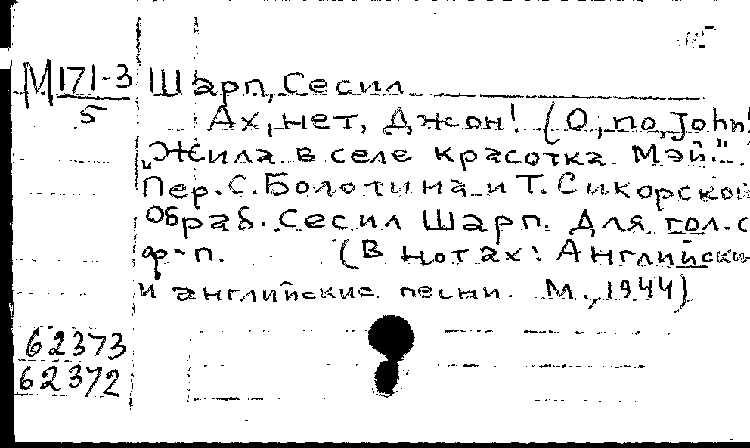 М 171-3/5 Шарп, Сесил
Ах, нет, Джон! (O, no, John!
„Жила в селе красотка Мэй..."
Пер. С. Болотина и Т. Сикорской
Обраб. Сесил Шарп. Для гол. с
ф-п. (В нотах: Английски
и английские песни. М., 1944)
62373
62372